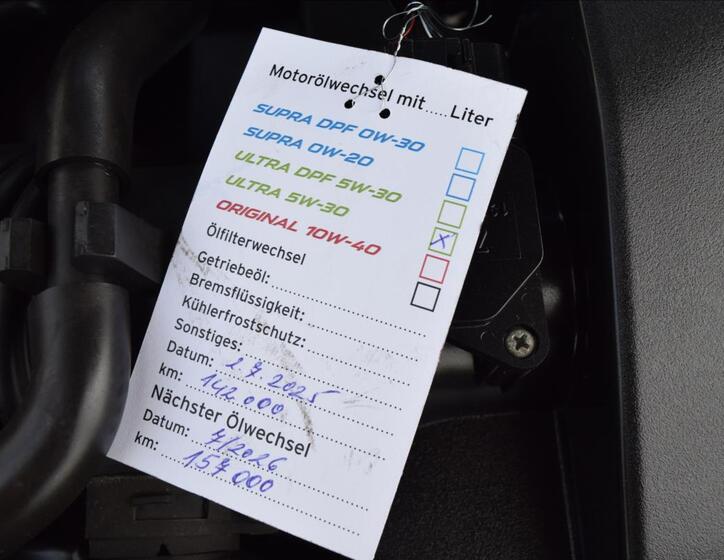 Motorölwechsel mit.....Liter
SUPRA DPF 0W-30
SUPRA 0W-20
ULTRA DPF 5W-30
ULTRA 5W-30
X
ORIGINAL 10W-40
Ölfilterwechsel
Getriebeöl:
Bremsflüssigkeit:
Kühlerfrostschutz:
Sonstiges:
Datum: 2.7.2025
km: 142 000
Nächster Ölwechsel
Datum: 7/2026
km: 157 000